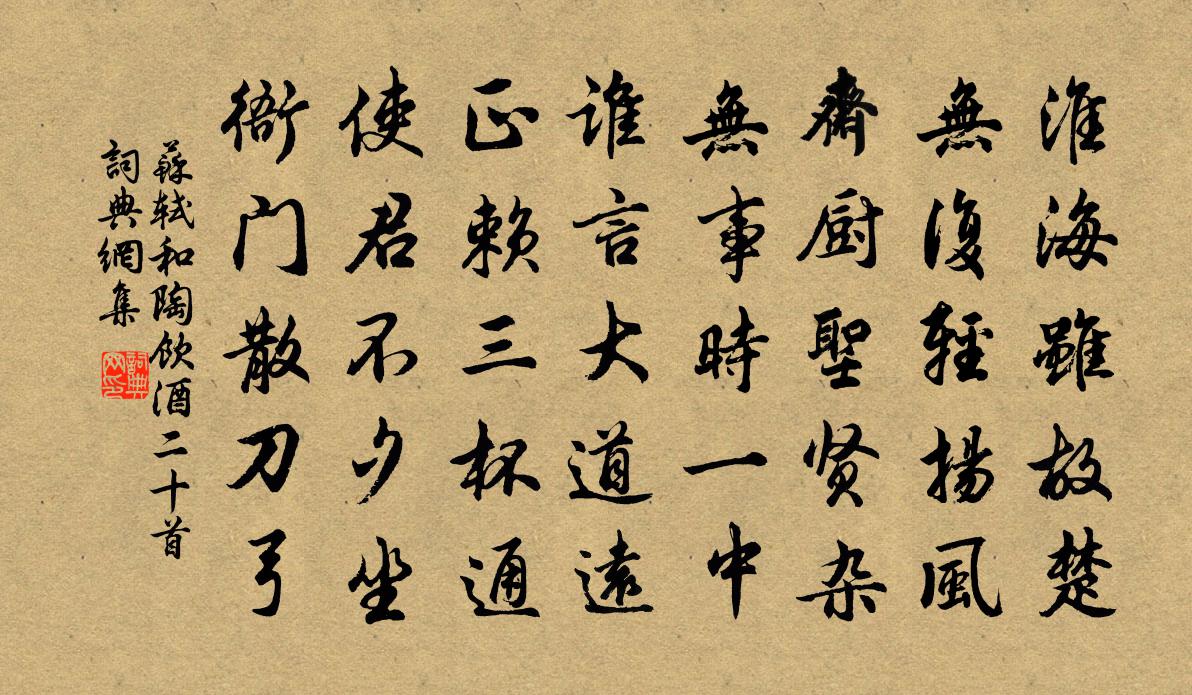 淮海雖故楚
無復輕揚風
齋厨聖贤杂
無事時一中
谁言大道遠
正赖三杯通
使君不夕坐
衙門散刀弓
蘇轼和陶飲酒二十首
詞典網集
詞典网印